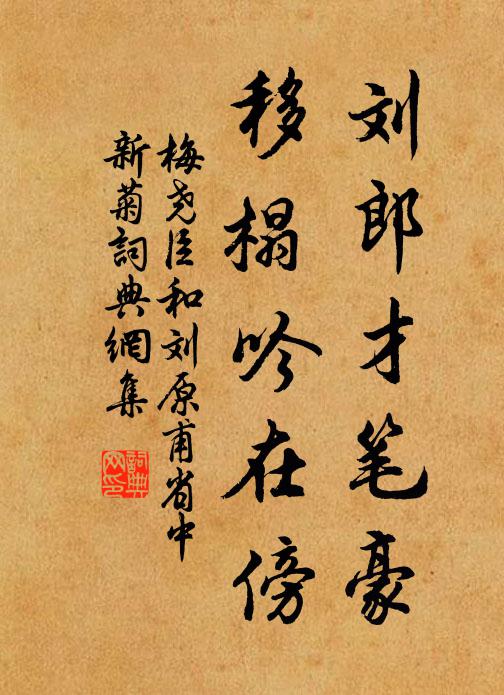 刘郎才笔豪
移榻吟在傍
梅尧臣和刘原甫省中
新菊詞典網集
詞典
网印